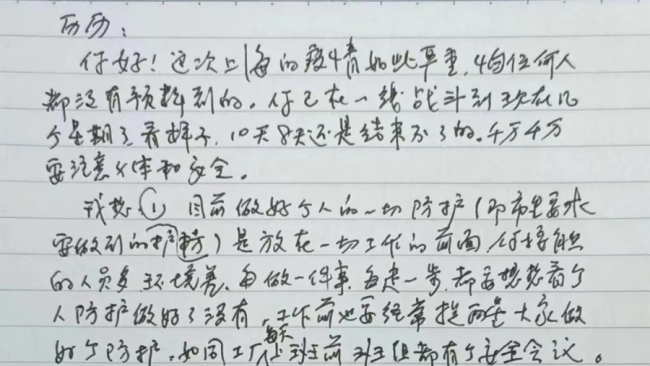 历历：
你好！这次上海的疫情如此严重，均任何人
都没有预料到的。你已在一线战斗到现在几
个星期了看样子，10天8天还是结束不了的。千万千万
要注意身体和安全。
我想①目前做好个人的一切防护（即市里要求
要做到的护防）是放在一切工作的前面，你接触
的人员多环境差，每做一件事，每走一步，都要想想看个
人防护做好了没有，工作前也要经常提醒大家做
好个防护，如同工厂每天上班前班组都有个安全会议。